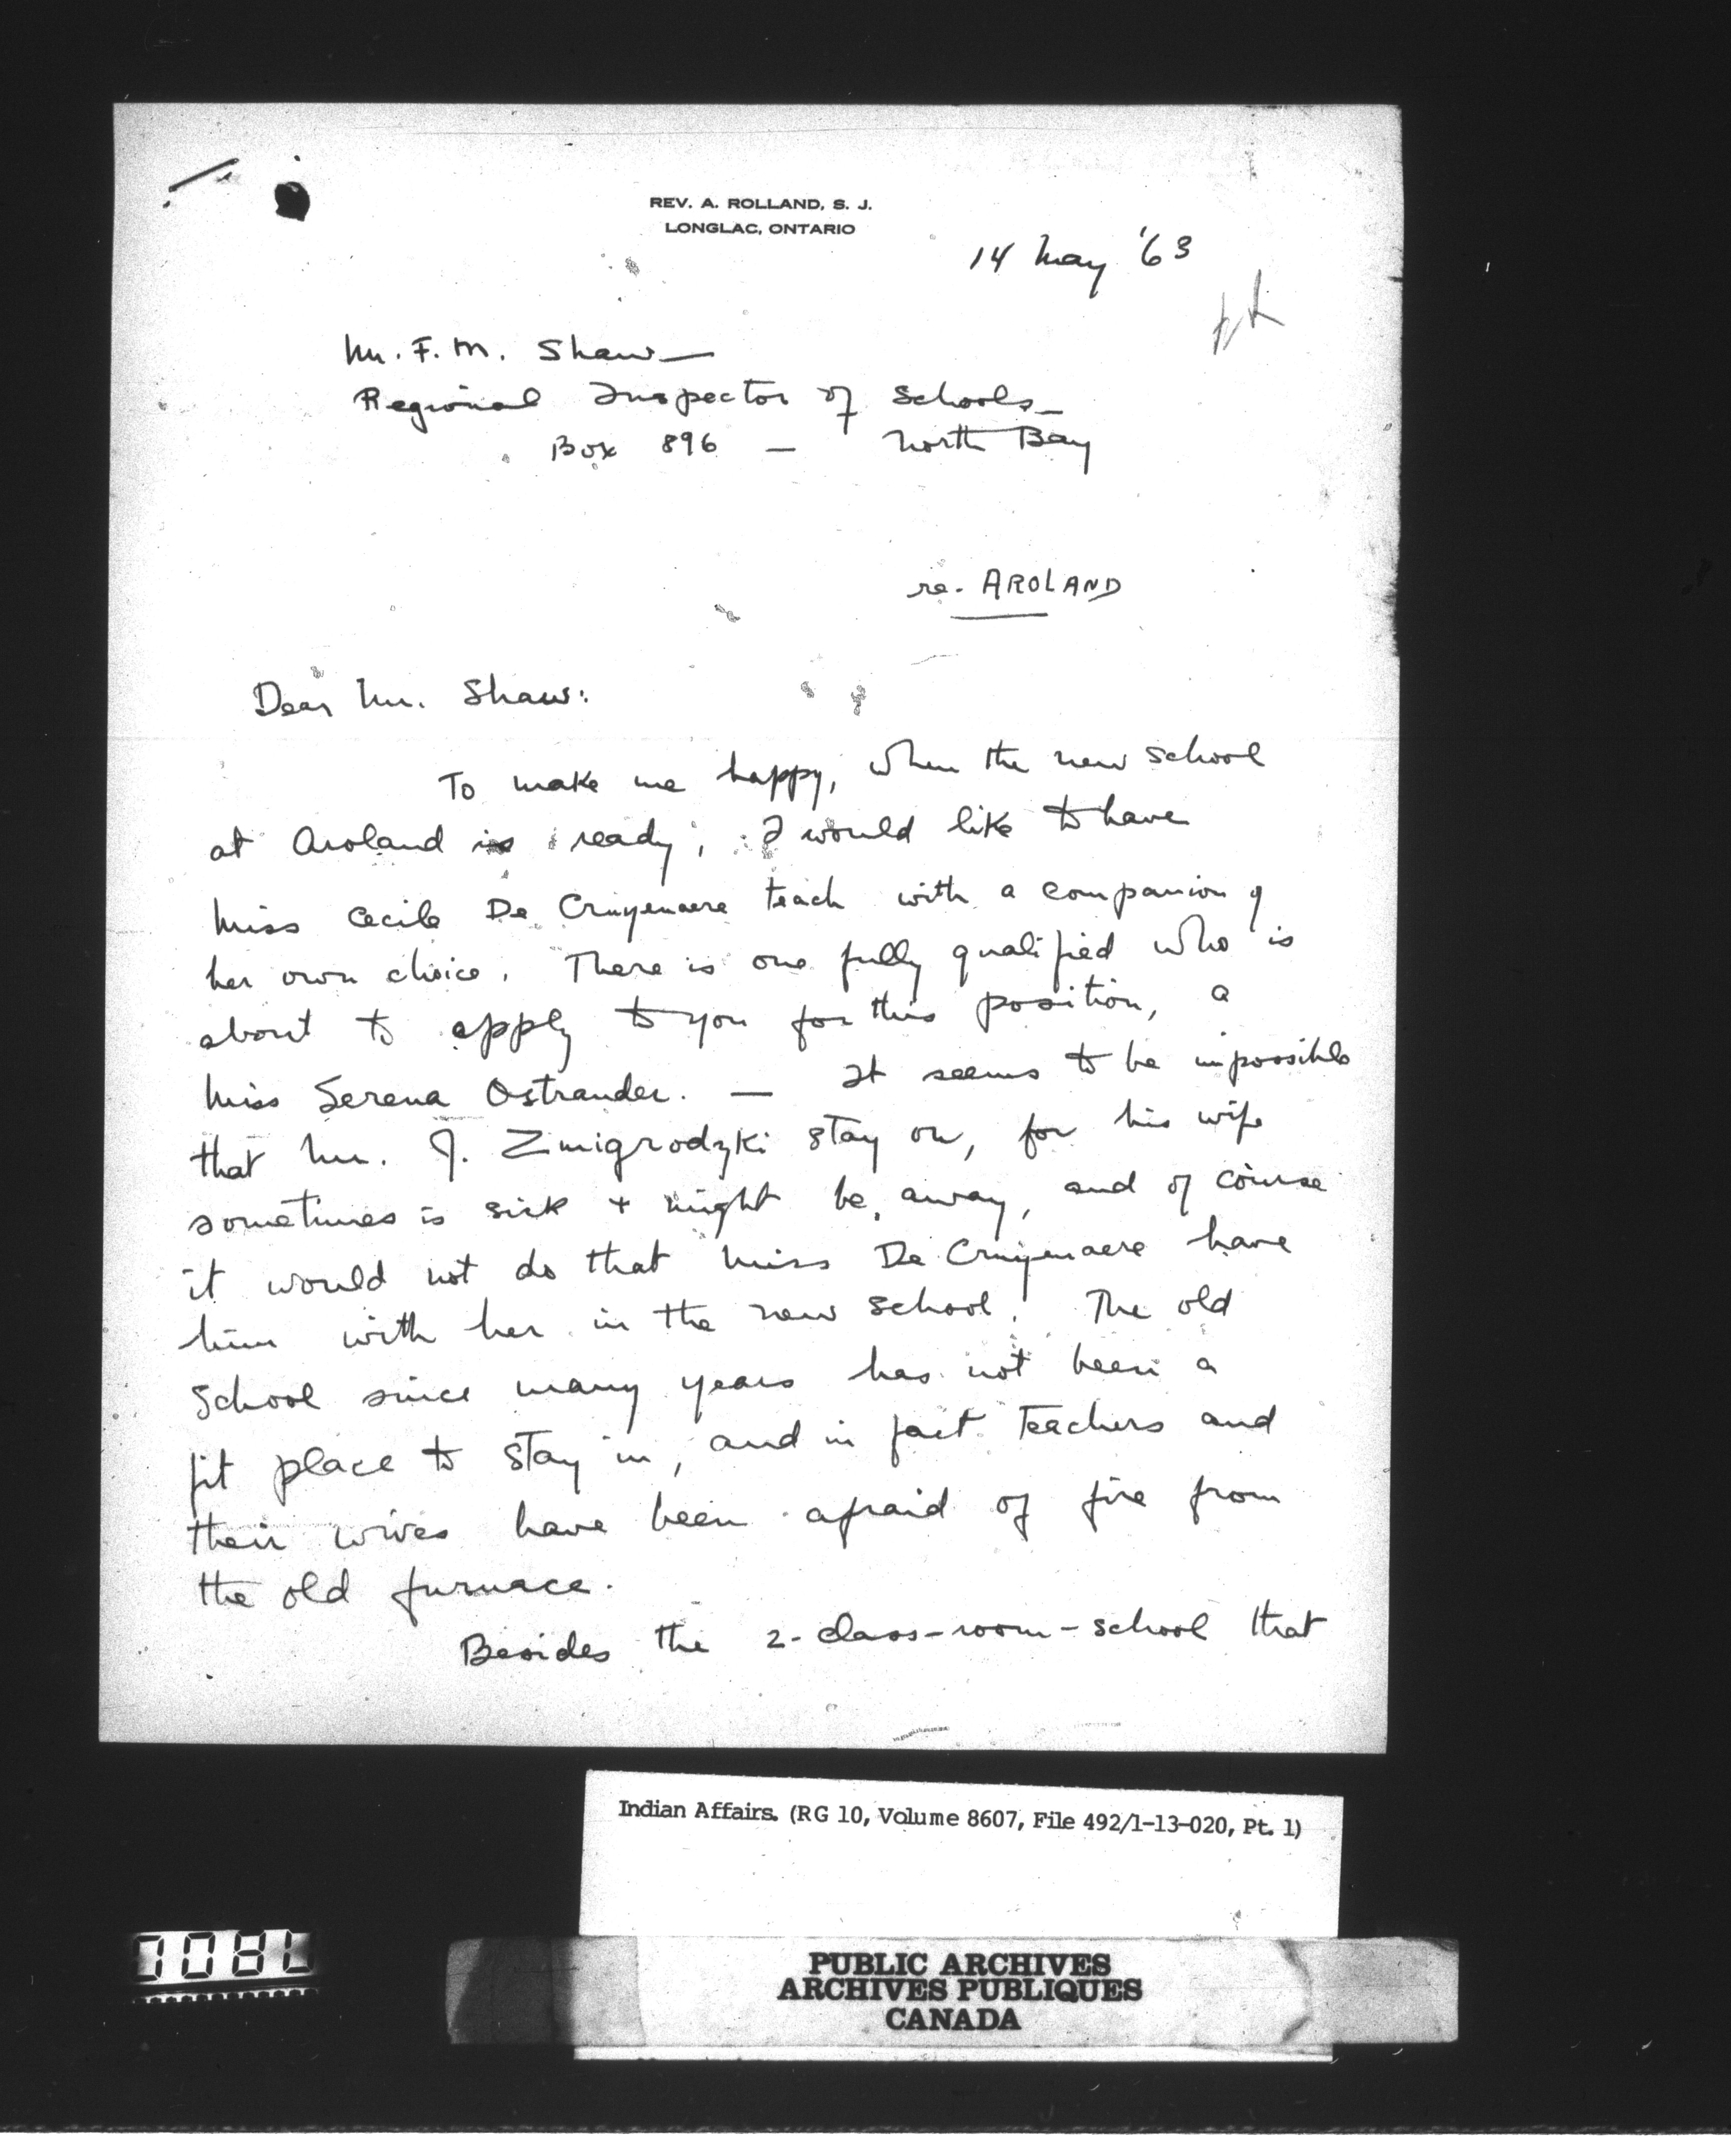 REV. A. ROLLAND, S. J.
LONGLAC, ONTARIO
14 May '63
Mr. F. M. Shaw—
Regional Inspector of Schools—
Box 896 — North Bay
re. AROLAND
Dear Mr. Shaw:
To make me happy, when the new school
at Aroland is ready, I would like to have
Miss Cecile De Cruyenaere teach with a companion of
her own choice. There is one fully qualified who is
about to apply to you for this position, a
Miss Serena Ostrander. — It seems to be impossible
that Mr. J. Zmigrodzki stay on, for his wife
sometimes is sick + might be away, and of course
it would not do that Miss De Cruyenaere have
him with her in the new school! The old
School since many years has not been a
fit place to stay in, and in fact Teachers and
their wives have been afraid of fire from
the old furnace.
Besides the 2-class-room-school that
Indian Affairs. (RG 10, Volume 8607, File 492/1-13-020, Pt. 1)
PUBLIC ARCHIVES
ARCHIVES PUBLIQUES
CANADA